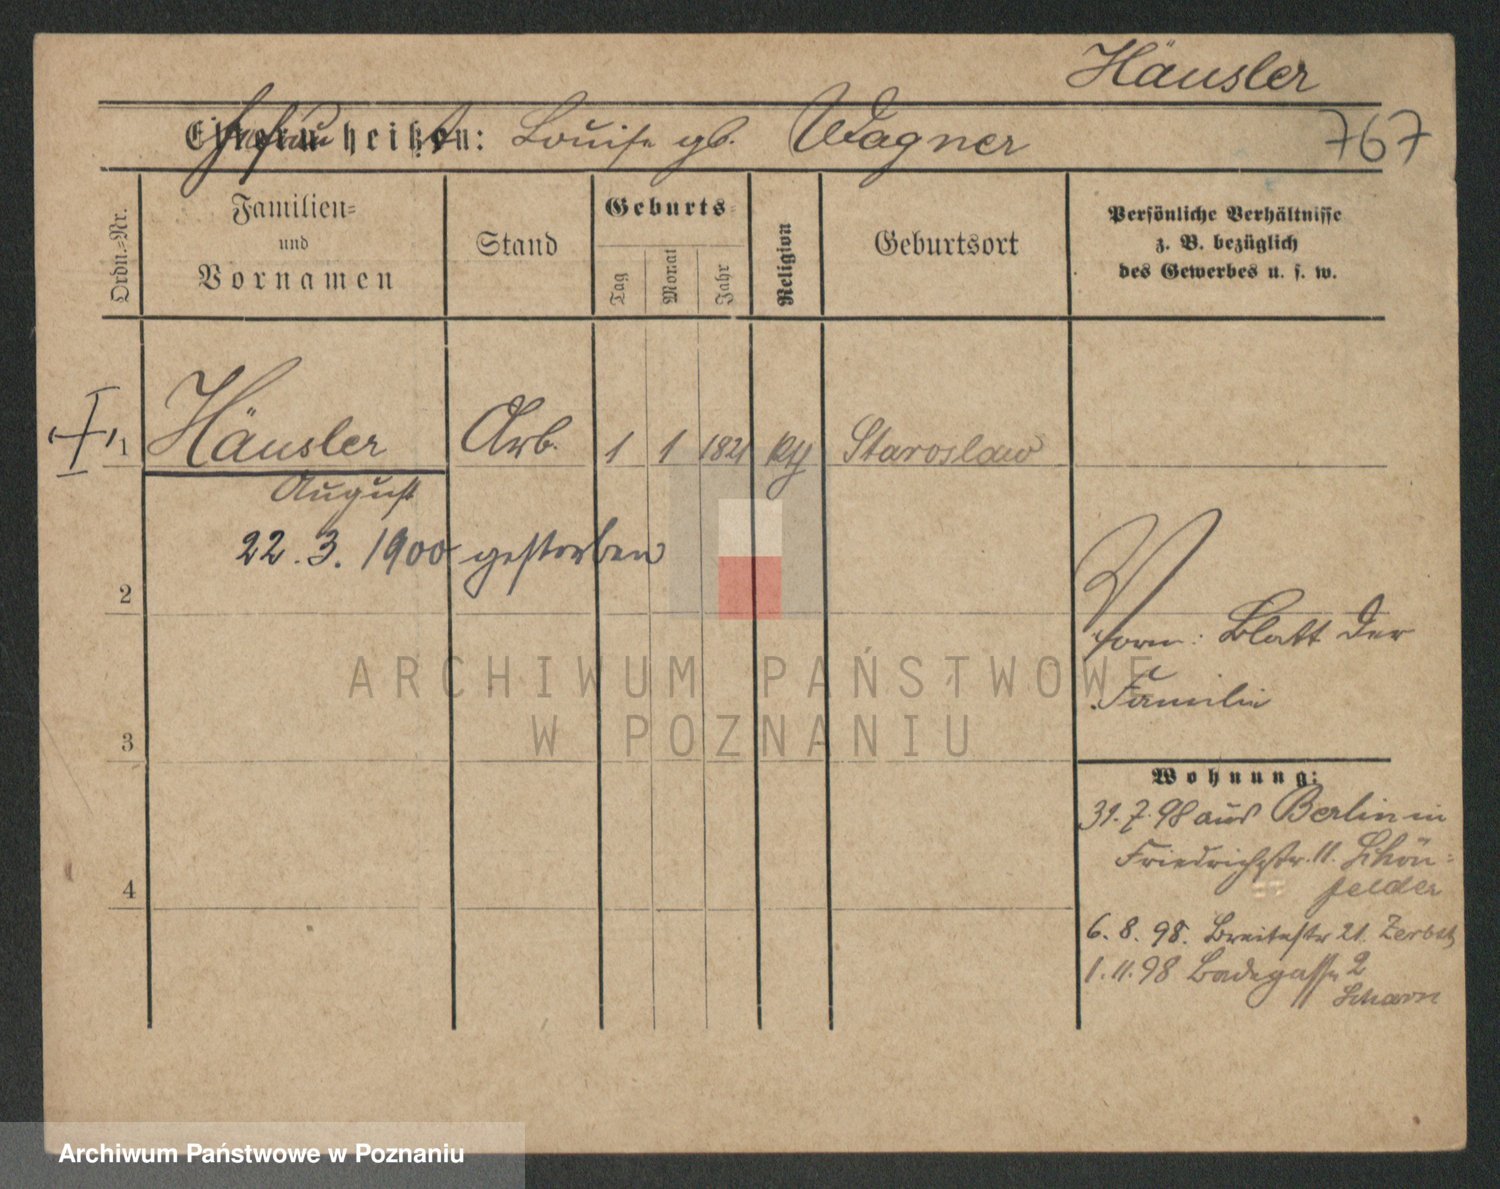 Häusler
767
Eltern heißen: Louise gb. Wagner
Ordn.=Nr.
Familien=
und
Vornamen
Stand
Geburts=
Tag
Monat
Jahr
Religion
Geburtsort
Persönliche Verhältnisse
z. B. bezüglich
des Gewerbes u. s. w.
1 Häusler Arb. 1 1 1821 Staroslaw
August
22. 3. 1900 gestorben
2
Blatt der
Familie
3
4
ARCHIWUM PAŃSTWOWE
W POZNANIU
Wohnung:
31. 7. 98 aus Berlin in
Friedrichstr. 11. Schön=
felder
6. 8. 98. Breitestr 21. Zerbst
1. 11. 98 Badegasse 2
Archiwum Państwowe w Poznaniu